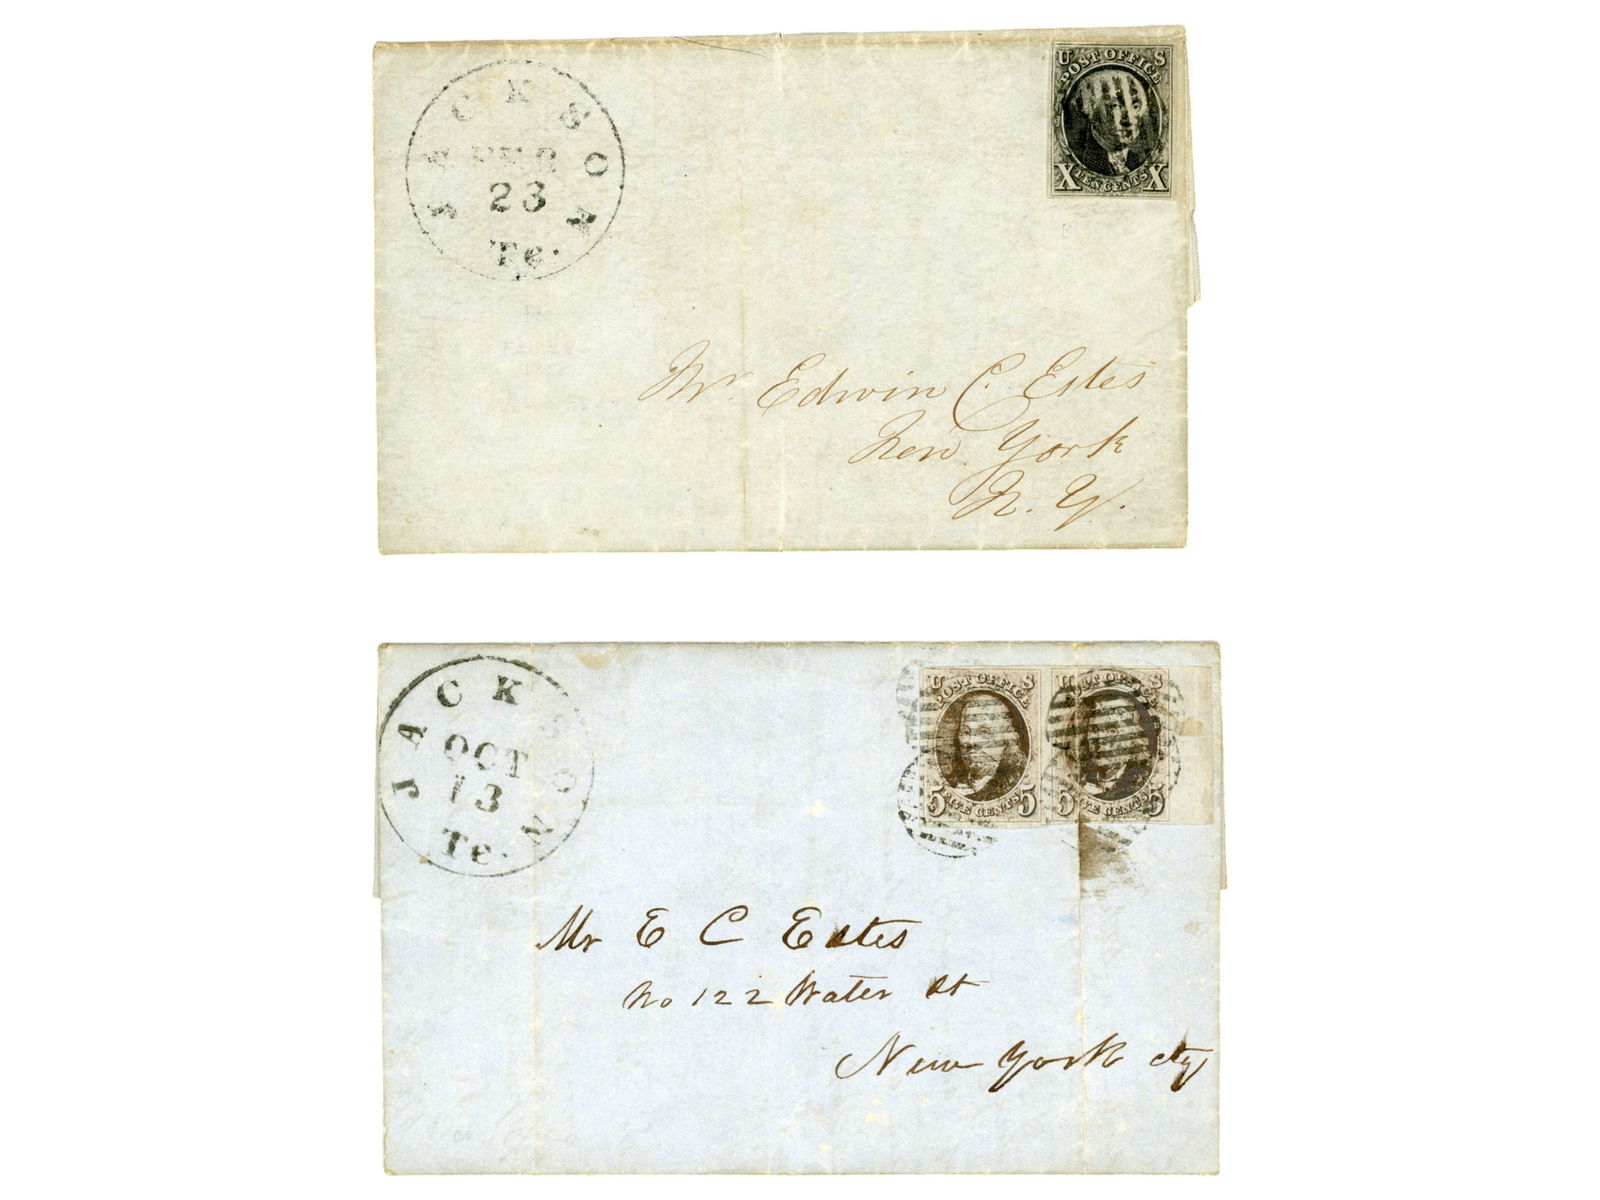 JACKSON
FEB
23
Te.
U S
POST OFFICE
X TEN CENTS X
Mr. Edwin C. Estes
New York
N. Y.
JACKSON
OCT
13
Te.
U S
POST OFFICE
5 FIVE CENTS 5
U S
POST OFFICE
5 FIVE CENTS 5
Mr E C Estes
No 122 Water St
New York City